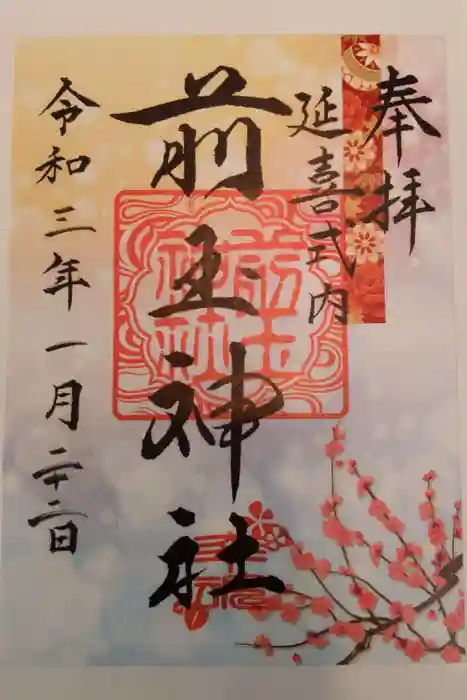 奉拝
延喜式内
前玉神社
令和三年一月二十二日
前玉
神社